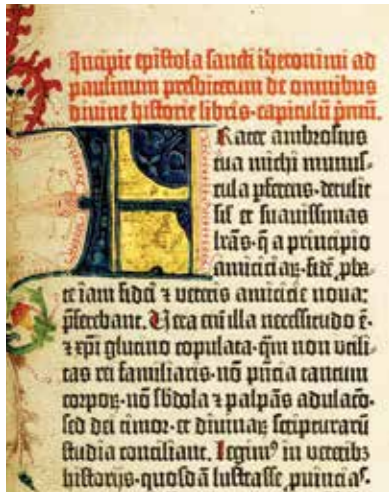 Incipit epistola sancti iheronimi ad
paulinum presbiterum de omnibus
divine historie libris·capitulū p̄mū.
FRater ambrosius
tua michi munus-
cula ꝑferens·detulit
sił et suavissimas
lr̄as·q̄ a principio
amiciciaꝝ·fidē ꝓba-
te iam fidei ⁊ veteris amicicie nova:
p̄ferebant. Vera eni̅ illa necessitudo ē·
⁊ xp̄i glutino copulata·qm̄ non utili-
tas rei familiaris·nō p̄ncia tantum
corpoꝝ·nō s̄bdola ⁊ palpās adulacō·
sed dei timor·et divinaꝝ scripturarū
studia conciliant. Legimꝰ in veteribꝫ
historijs·quosdā lustrasse ꝓuincias·